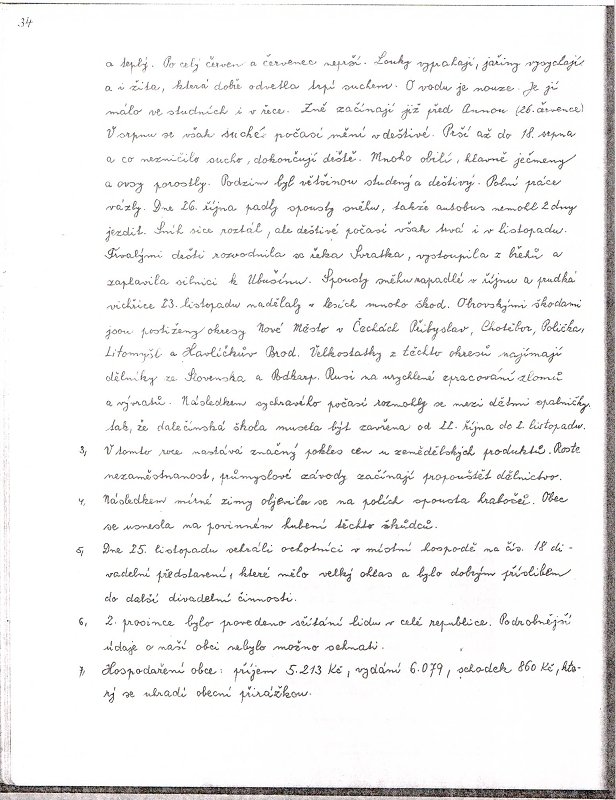 34
a teplý. Po celý červen a červenec neprší. Louky vyprahají, jařiny vysychají
a i žita, která dobře odvetla trpí suchem. O vodu je nouze. Je jí
málo ve studních i v řece. Žně začínají již před Annou (26. července)
V srpnu se však suché počasí mění v deštivé. Prší až do 18. srpna
a co nezničilo sucho, dokončují deště. Mnoho obilí, hlavně ječmeny
a ovsy porostly. Podzim byl většinou studený a deštivý. Polní práce
vázly. Dne 26. října padly spousty sněhu, takže autobus nemohl 2 dny
jezdit. Sníh sice roztál, ale deštivé počasí však trvá i v listopadu.
Trvalými dešti rozvodnila se řeka Svratka, vystoupila z břehů a
zaplavila silnici k Ubušínu. Spousty sněhu napadlé v říjnu a prudká
vichřice 23. listopadu nadělaly v lesích mnoho škod. Obrovskými škodami
jsou postiženy okresy Nové Město v Čechách Přibyslav, Chotěboř, Polička,
Litomyšl a Havlíčkův Brod. Velkostatky z těchto okresů najímají
dělníky ze Slovenska a Podkarp. Rusi na urychlené zpracování zlomů
a vývratů. Následkem sychravého počasí rozmohly se mezi dětmi spalničky,
tak, že dalečínská škola musela být zavřena od 22. října do 2. listopadu.
3, V tomto roce nastává značný pokles cen u zemědělských produktů. Roste
nezaměstnanost, průmyslové závody začínají propouštět dělnictvo.
4, Následkem mírné zimy objevila se na polích spousta hrabošů. Obec
se usnesla na povinném hubení těchto škůdců.
5, Dne 25. listopadu sehráli ochotníci v místní hospodě na čís. 18 di-
vadelní představení, které mělo velký ohlas a bylo dobrým příslibem
do další divadelní činnosti.
6, 2. prosince bylo provedeno sčítání lidu v celé republice. Podrobnější
údaje o naší obci nebylo možno sehnati.
7, Hospodaření obce: příjem 5.213 Kč, vydání 6.079, schodek 860 Kč, kte-
rý se uhradí obecní přirážkou.